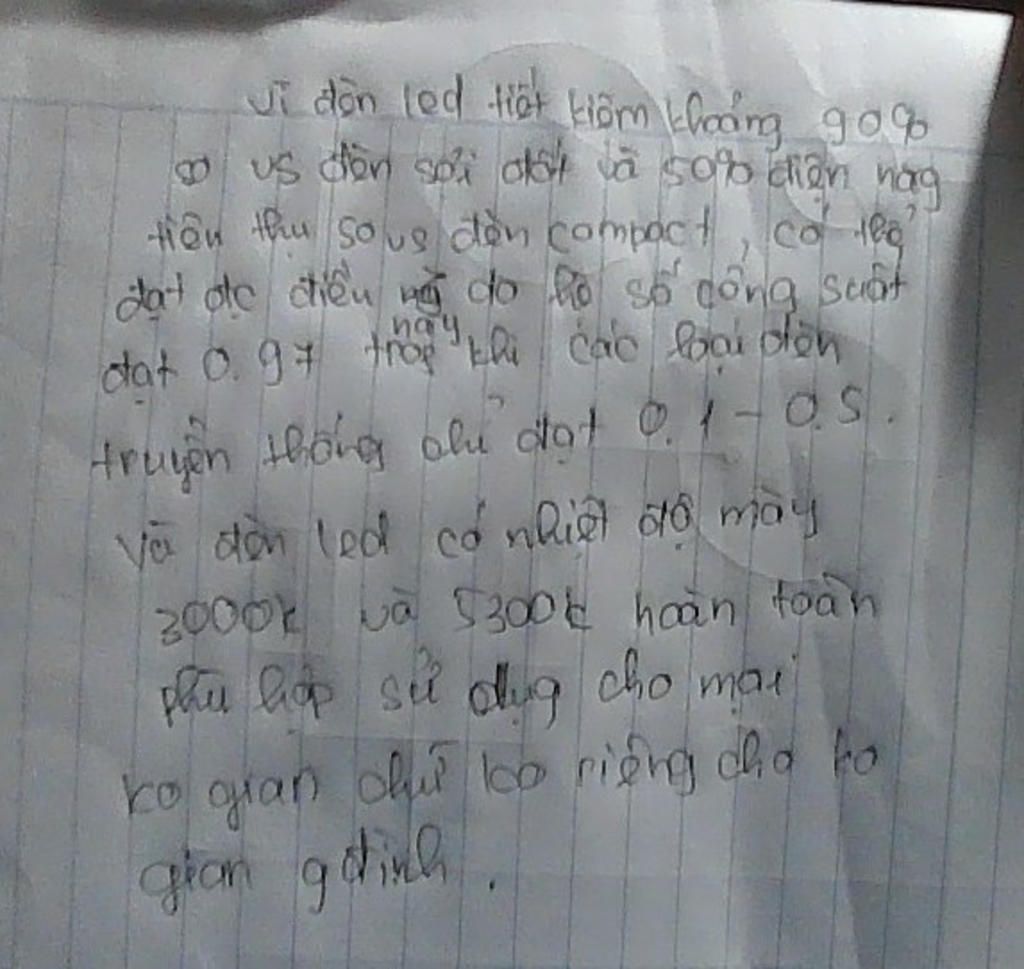 vì đèn led tiết kiệm khoảng 90%
so vs đèn sợi đốt và 50% điện năg
tiêu thụ so vs đèn compact, có thể
đạt đc điều này do hệ số công suất
đạt 0.97 trog khi các loại đèn
truyền thống chỉ đạt 0.1 - 0.5.
Và đèn led có nhiệt độ mày
3000k và 5300k hoàn toàn
phù hợp sử dụg cho mọi
ko gian chứ ko riêng cho ko
gian g đình.